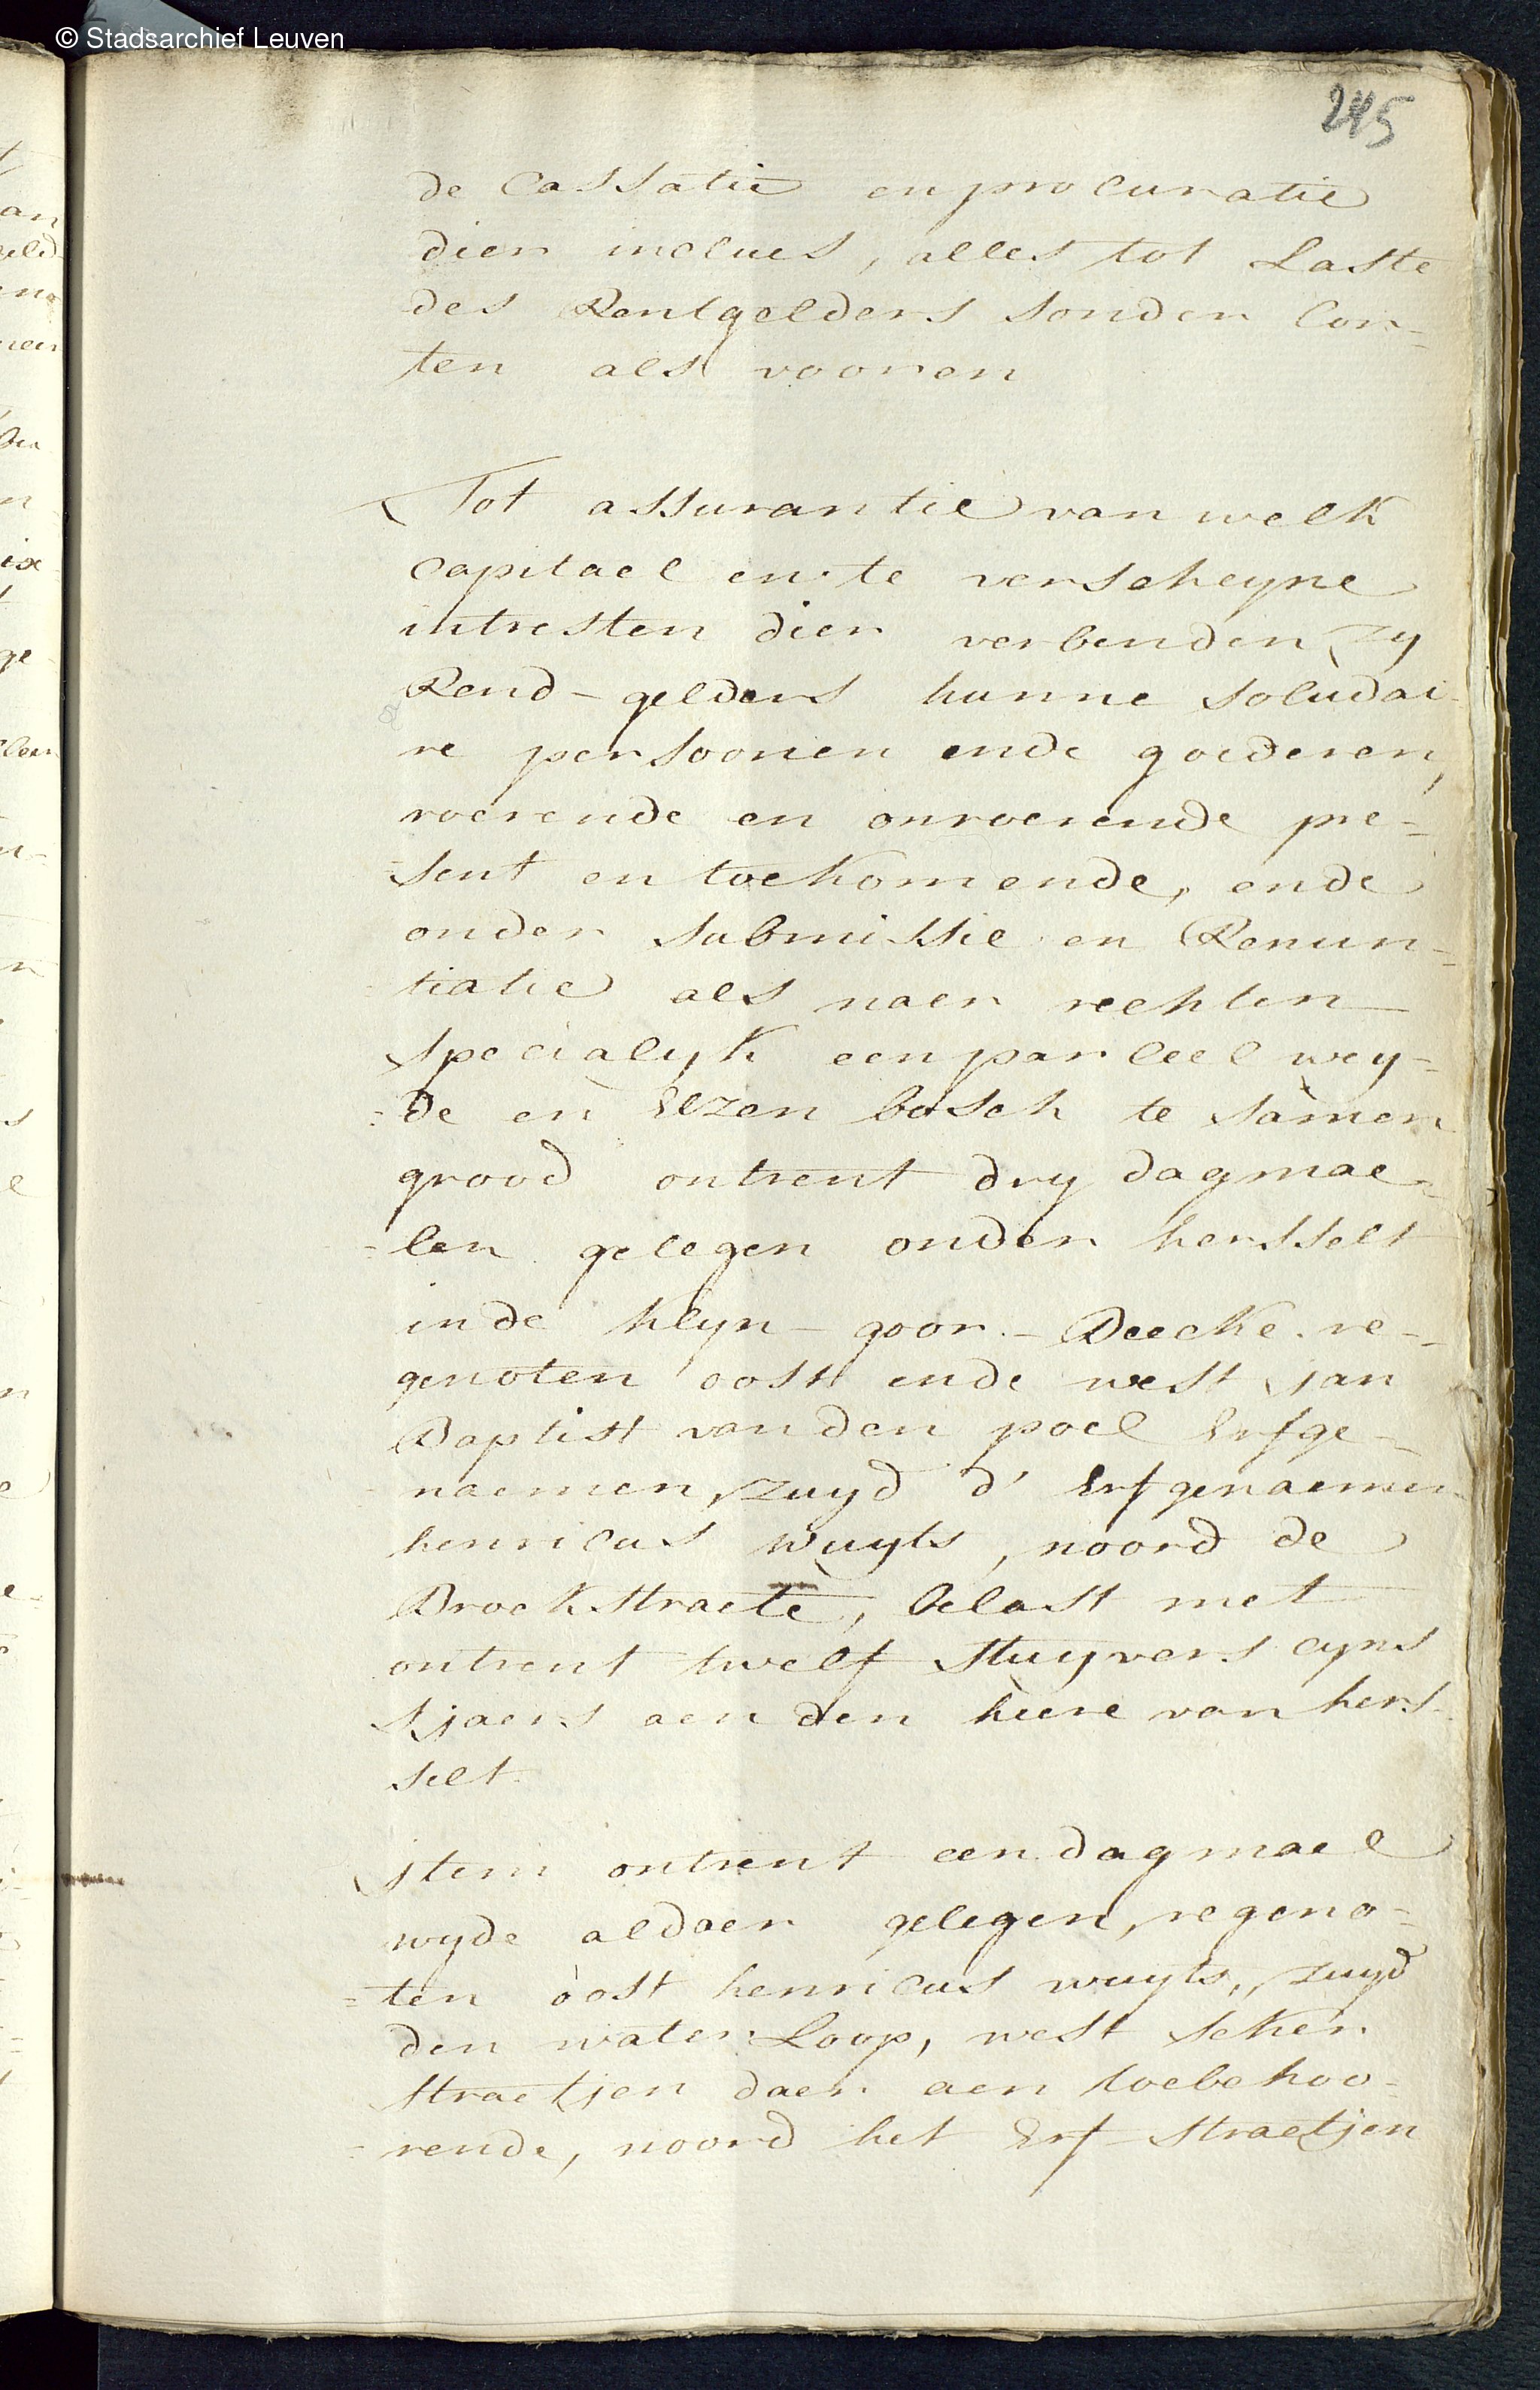 © Stadsarchief Leuven
245
de Cassatie en procuratie
dier inclues, alles tot Laste
des Rentgelders sonder Cor-
ten als vooren
Tot assurantie van welk
capitael en te verscheyne
intresten dier verbenden zy
Rend-gelders hunne solidai-
re persoonen ende goederen,
roerende en onroerende pre-
=sent en toekomende, ende
onder submissie en Renun-
=tiatie als naer rechten
specialyk een parceel wey-
=de en Elzen bosch te samen
grood ontrent dry dagmae-
=len gelegen onder hersselt
in de kleyn-goor-Beecke re-
genoten oost ende west jan
Baptist van den poel Erfge-
naemen, zuyd d' Erfgenaemen
henricus wuyts, noord de
Broekstraete, belast met
ontrent twelf stuyvers cyns
sjaers aen den heere van hers-
selt
jtem ontrent een dagmael
wyde aldaer gelegen, regeno-
=ten oost henricus wuyts, zuyd
den water Loop, west seker
straetjen daer aen toebehoo-
=rende, noord het Erf straetjen